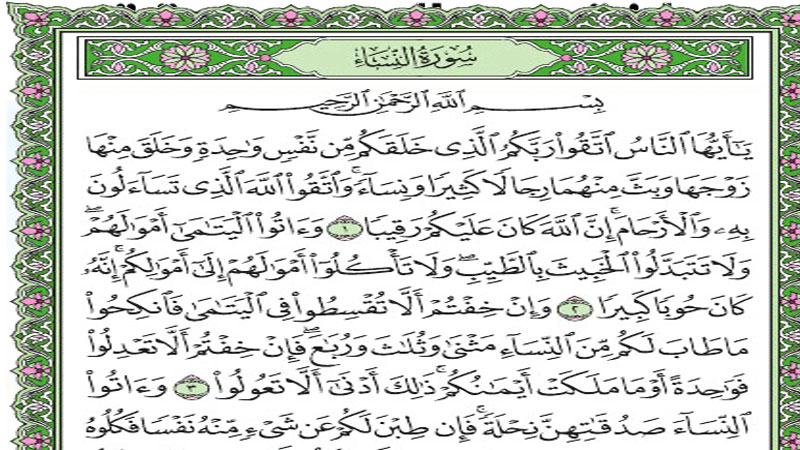 سُورَةُ النِّسَاءِ
بِسْمِ اللَّهِ الرَّحْمَٰنِ الرَّحِيمِ
يَٰٓأَيُّهَا ٱلنَّاسُ ٱتَّقُوا۟ رَبَّكُمُ ٱلَّذِى خَلَقَكُم مِّن نَّفْسٍ وَٰحِدَةٍ وَخَلَقَ مِنْهَا
زَوْجَهَا وَبَثَّ مِنْهُمَا رِجَالًا كَثِيرًا وَنِسَآءً ۚ وَٱتَّقُوا۟ ٱللَّهَ ٱلَّذِى تَسَآءَلُونَ
بِهِۦ وَٱلْأَرْحَامَ ۚ إِنَّ ٱللَّهَ كَانَ عَلَيْكُمْ رَقِيبًا ١ وَءَاتُوا۟ ٱلْيَتَٰمَىٰٓ أَمْوَٰلَهُمْ ۖ
وَلَا تَتَبَدَّلُوا۟ ٱلْخَبِيثَ بِٱلطَّيِّبِ ۖ وَلَا تَأْكُلُوٓا۟ أَمْوَٰلَهُمْ إِلَىٰٓ أَمْوَٰلِكُمْ ۚ إِنَّهُۥ
كَانَ حُوبًا كَبِيرًا ٢ وَإِنْ خِفْتُمْ أَلَّا تُقْسِطُوا۟ فِى ٱلْيَتَٰمَىٰ فَٱنكِحُوا۟
مَا طَابَ لَكُم مِّنَ ٱلنِّسَآءِ مَثْنَىٰ وَثُلَٰثَ وَرُبَٰعَ ۖ فَإِنْ خِفْتُمْ أَلَّا تَعْدِلُوا۟
فَوَٰحِدَةً أَوْ مَا مَلَكَتْ أَيْمَٰنُكُمْ ۚ ذَٰلِكَ أَدْنَىٰٓ أَلَّا تَعُولُوا۟ ٣ وَءَاتُوا۟
ٱلنِّسَآءَ صَدُقَٰتِهِنَّ نِحْلَةً ۚ فَإِن طِبْنَ لَكُمْ عَن شَىْءٍ مِّنْهُ نَفْسًا فَكُلُوهُ